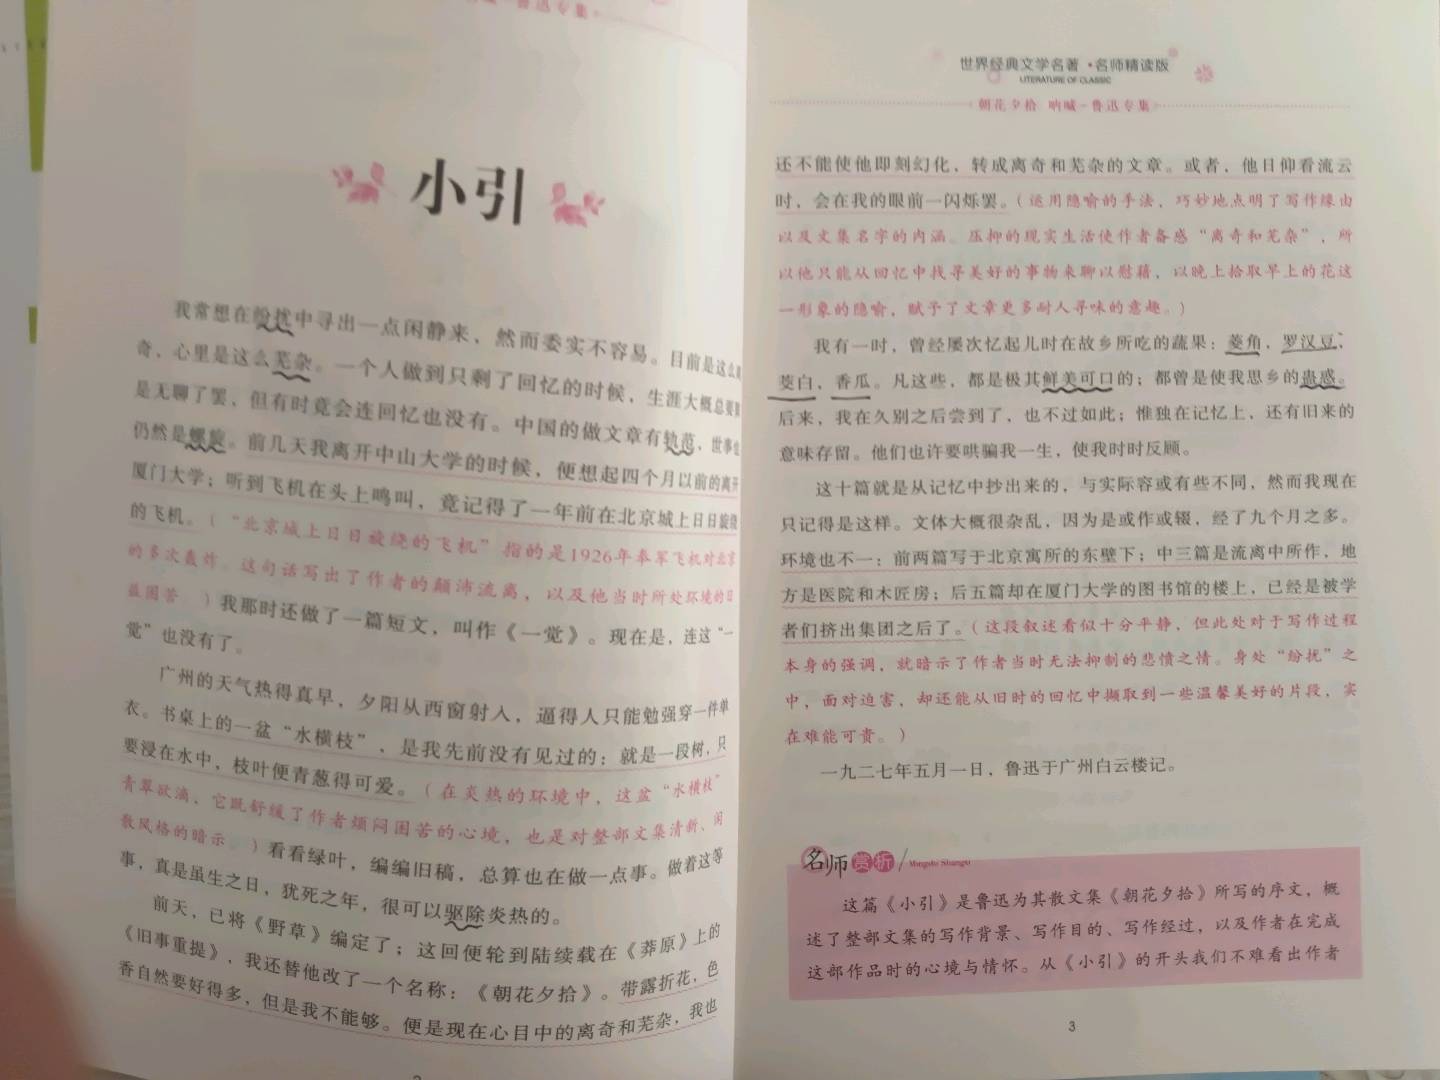 呐喊－鲁迅专集
小引
我常想在纷扰中寻出一点闲静来，然而委实不容易。目前是这么
奇，心里是这么芜杂。一个人做到只剩了回忆的时候，生涯大概总要
是无聊了罢，但有时竟会连回忆也没有。中国的做文章有轨范，世事也
仍然是螺旋。前几天我离开中山大学的时候，便想起四个月以前的离开
厦门大学；听到飞机在头上鸣叫，竟记得了一年前在北京城上日日旋绕
的飞机。（“北京城上日日旋绕的飞机”指的是1926年奉军飞机对北京
的多次轰炸。这句话写出了作者的颠沛流离，以及他当时所处环境的日
益困苦 ）我那时还做了一篇短文，叫作《一觉》。现在是，连这“一
觉”也没有了。
广州的天气热得真早，夕阳从西窗射入，逼得人只能勉强穿一件单
衣。书桌上的一盆“水横枝”，是我先前没有见过的：就是一段树，只
要浸在水中，枝叶便青葱得可爱。（在炎热的环境中，这盆“水横枝”
青翠欲滴，它既舒缓了作者烦闷困苦的心境，也是对整部文集清新、闲
散风格的暗示 ）看看绿叶，编编旧稿，总算也在做一点事。做着这等
事，真是虽生之日，犹死之年，很可以驱除炎热的。
前天，已将《野草》编定了；这回便轮到陆续载在《莽原》上的
《旧事重提》，我还替他改了一个名称：《朝花夕拾》。带露折花，色
香自然要好得多，但是我不能够。便是现在心目中的离奇和芜杂，我也
世界经典文学名著·名师精读版
LITERATURE OF CLASSIC
朝花夕拾 呐喊－鲁迅专集
还不能使他即刻幻化，转成离奇和芜杂的文章。或者，他日仰看流云
时，会在我的眼前一闪烁罢。（运用隐喻的手法，巧妙地点明了写作缘由
以及文集名字的内涵。压抑的现实生活使作者备感“离奇和芜杂”，所
以他只能从回忆中找寻美好的事物来聊以慰藉，以晚上拾取早上的花这
一形象的隐喻，赋予了文章更多耐人寻味的意趣。）
我有一时，曾经屡次忆起儿时在故乡所吃的蔬果：菱角，罗汉豆，
茭白，香瓜。凡这些，都是极其鲜美可口的；都曾是使我思乡的蛊惑。
后来，我在久别之后尝到了，也不过如此；惟独在记忆上，还有旧来的
意味存留。他们也许要哄骗我一生，使我时时反顾。
这十篇就是从记忆中抄出来的，与实际容或有些不同，然而我现在
只记得是这样。文体大概很杂乱，因为是或作或辍，经了九个月之多。
环境也不一：前两篇写于北京寓所的东壁下；中三篇是流离中所作，地
方是医院和木匠房；后五篇却在厦门大学的图书馆的楼上，已经是被学
者们挤出集团之后了。（这段叙述看似十分平静，但此处对于写作过程
本身的强调，就暗示了作者当时无法抑制的悲愤之情。身处“纷扰”之
中，面对迫害，却还能从旧时的回忆中撷取到一些温馨美好的片段，实
在难能可贵。）
一九二七年五月一日，鲁迅于广州白云楼记。
名师赏析/Mingshi Shangxi
这篇《小引》是鲁迅为其散文集《朝花夕拾》所写的序文，概
述了整部文集的写作背景、写作目的、写作经过，以及作者在完成
这部作品时的心境与情怀。从《小引》的开头我们不难看出作者
3